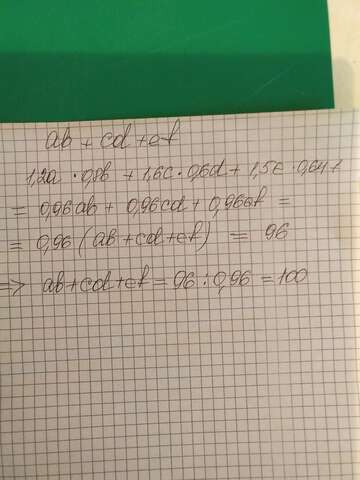 ab + cd + ef
1,2a · 0,8b + 1,6c · 0,6d + 1,5e · 0,64f
= 0,96ab + 0,96cd + 0,96ef =
= 0,96 (ab + cd + ef) = 96
⇒ ab + cd + ef = 96 : 0,96 = 100